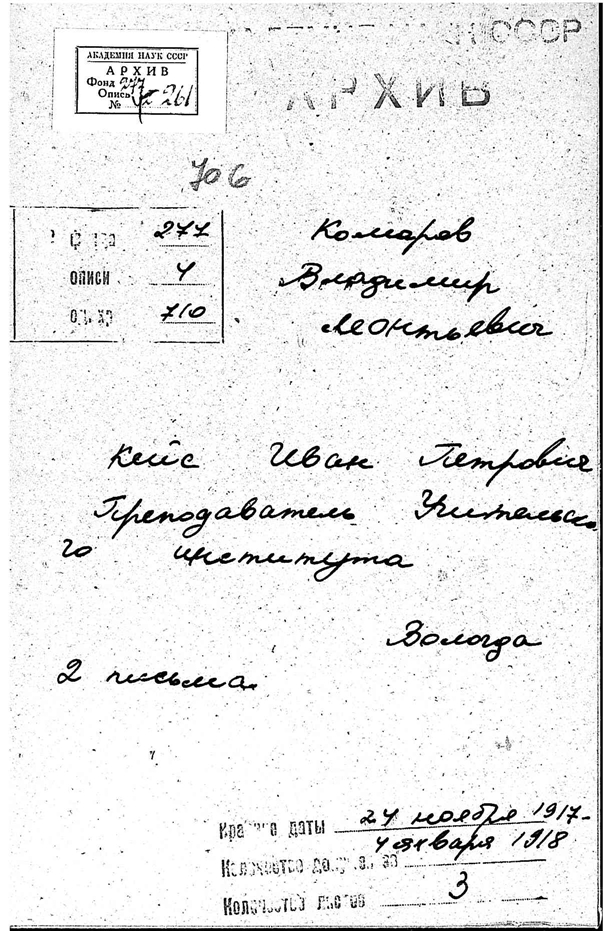 Н СССР
АРХИВ
АКАДЕМИЯ НАУК СССР
АРХИВ
Фонд 277
Опись
№ 261
706
277
описи 4
710
Комаров
Владимир
Леонтьевич
Кейс Иван Петрович
Преподаватель Учительско
го института
Вологда
2 письма.
даты 24 ноября 1917-
4 января 1918
Количество
Количество листов 3